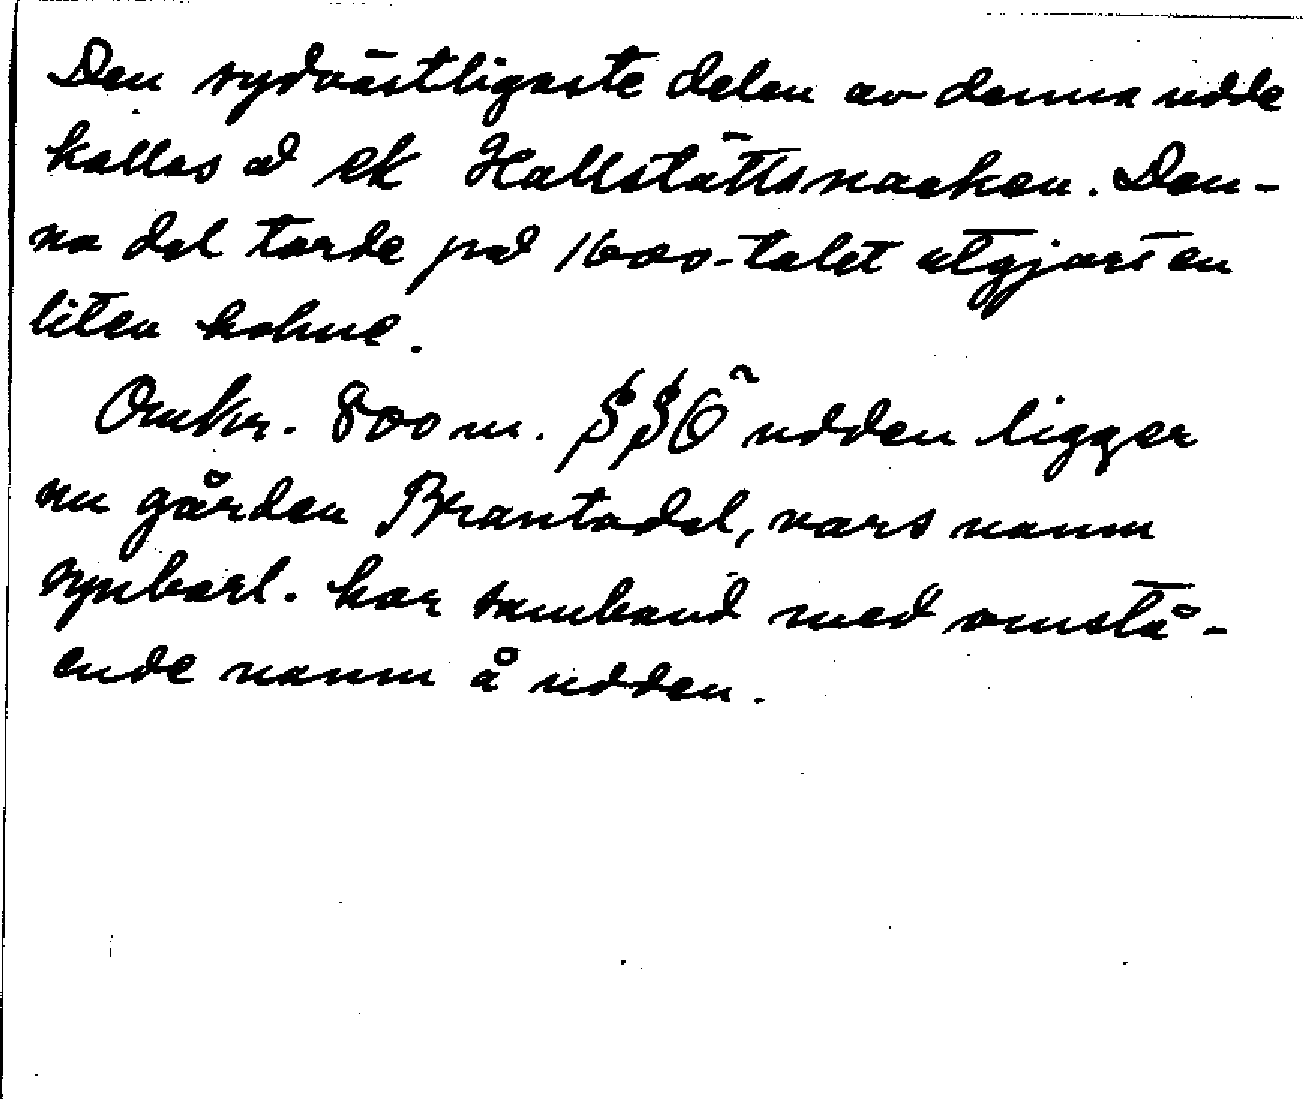 Den sydvästligaste delen av denna udde
kallas å ek Hallstättsnacken. Den-
na del torde på 1600-talet utgjort en
liten holme.
Omkr. 800 m. SSÖ udden ligger
nu gården Brantadal, vars namn
synbarl. har samband med omstå-
ende namn å udden.